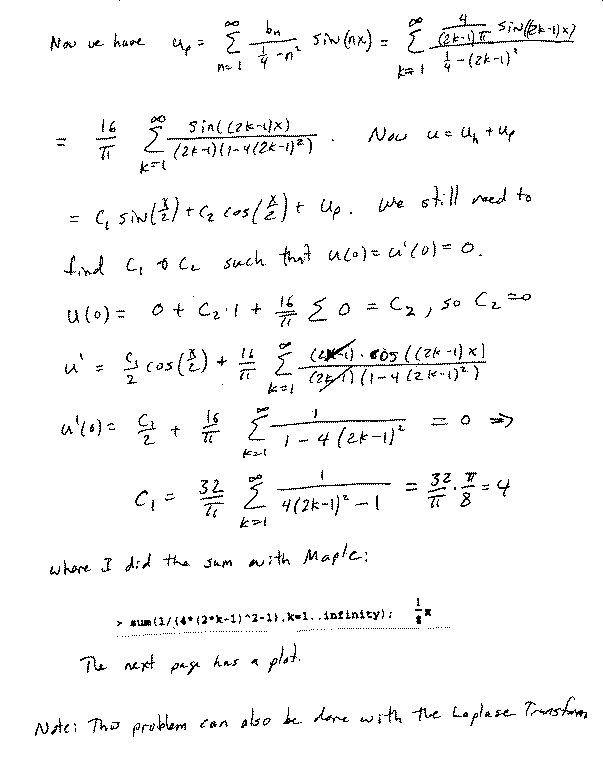 Now we have u_p = ∑_{n=1}^{∞} b_n / (1/4 - n²) sin(nx) = ∑_{k=1}^{∞} (4/((2k-1)π) sin((2k-1)x)) / (1/4 - (2k-1)²)
= 16/π ∑_{k=1}^{∞} sin((2k-1)x) / ((2k-1)(1-4(2k-1)²)) . Now u = u_h + u_p
= C₁ sin(x/2) + C₂ cos(x/2) + u_p. We still need to
find C₁ & C₂ such that u(0) = u'(0) = 0.
u(0) = 0 + C₂·1 + 16/π ∑ 0 = C₂, so C₂ = 0
u' = C₁/2 cos(x/2) + 16/π ∑_{k=1}^{∞} (2k-1)·cos((2k-1)x) / ((2k-1)(1-4(2k-1)²))
u'(0) = C₁/2 + 16/π ∑_{k=1}^{∞} 1 / (1-4(2k-1)²) = 0 ⇒
C₁ = 32/π ∑_{k=1}^{∞} 1 / (4(2k-1)² - 1) = 32/π · π/8 = 4
where I did the sum with Maple:
> sum(1/(4*(2*k-1)^2-1),k=1..infinity); 1/8 π
The next page has a plot.
Note: This problem can also be done with the Laplase Transform